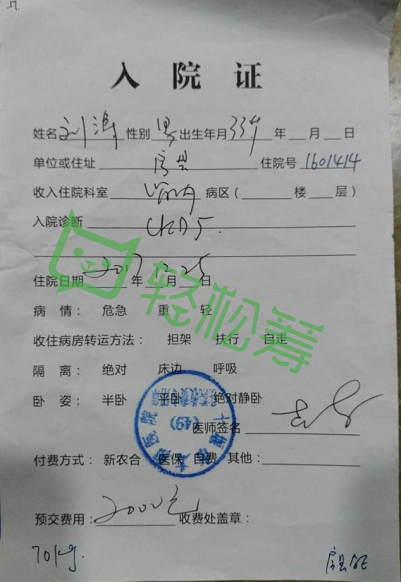 入院证
姓名 刘涛 性别 男 出生年月 33岁 年 月 日
单位或住址 房县 住院号 1601414
收入住院科室 肾内 病区( 楼 层)
入院诊断 CKD5.
住院日期 2017 年 12 月 25 日
病 情: 危急 重 轻
收住病房转运方法: 担架 扶行 自走
隔 离: 绝对 床边 呼吸
卧 姿: 半卧 平卧 绝对静卧
医师签名
付费方式: 新农合 医保 自费 其他:
预交费用: 2000元 收费处盖章:
70kg.
轻松筹
(49)